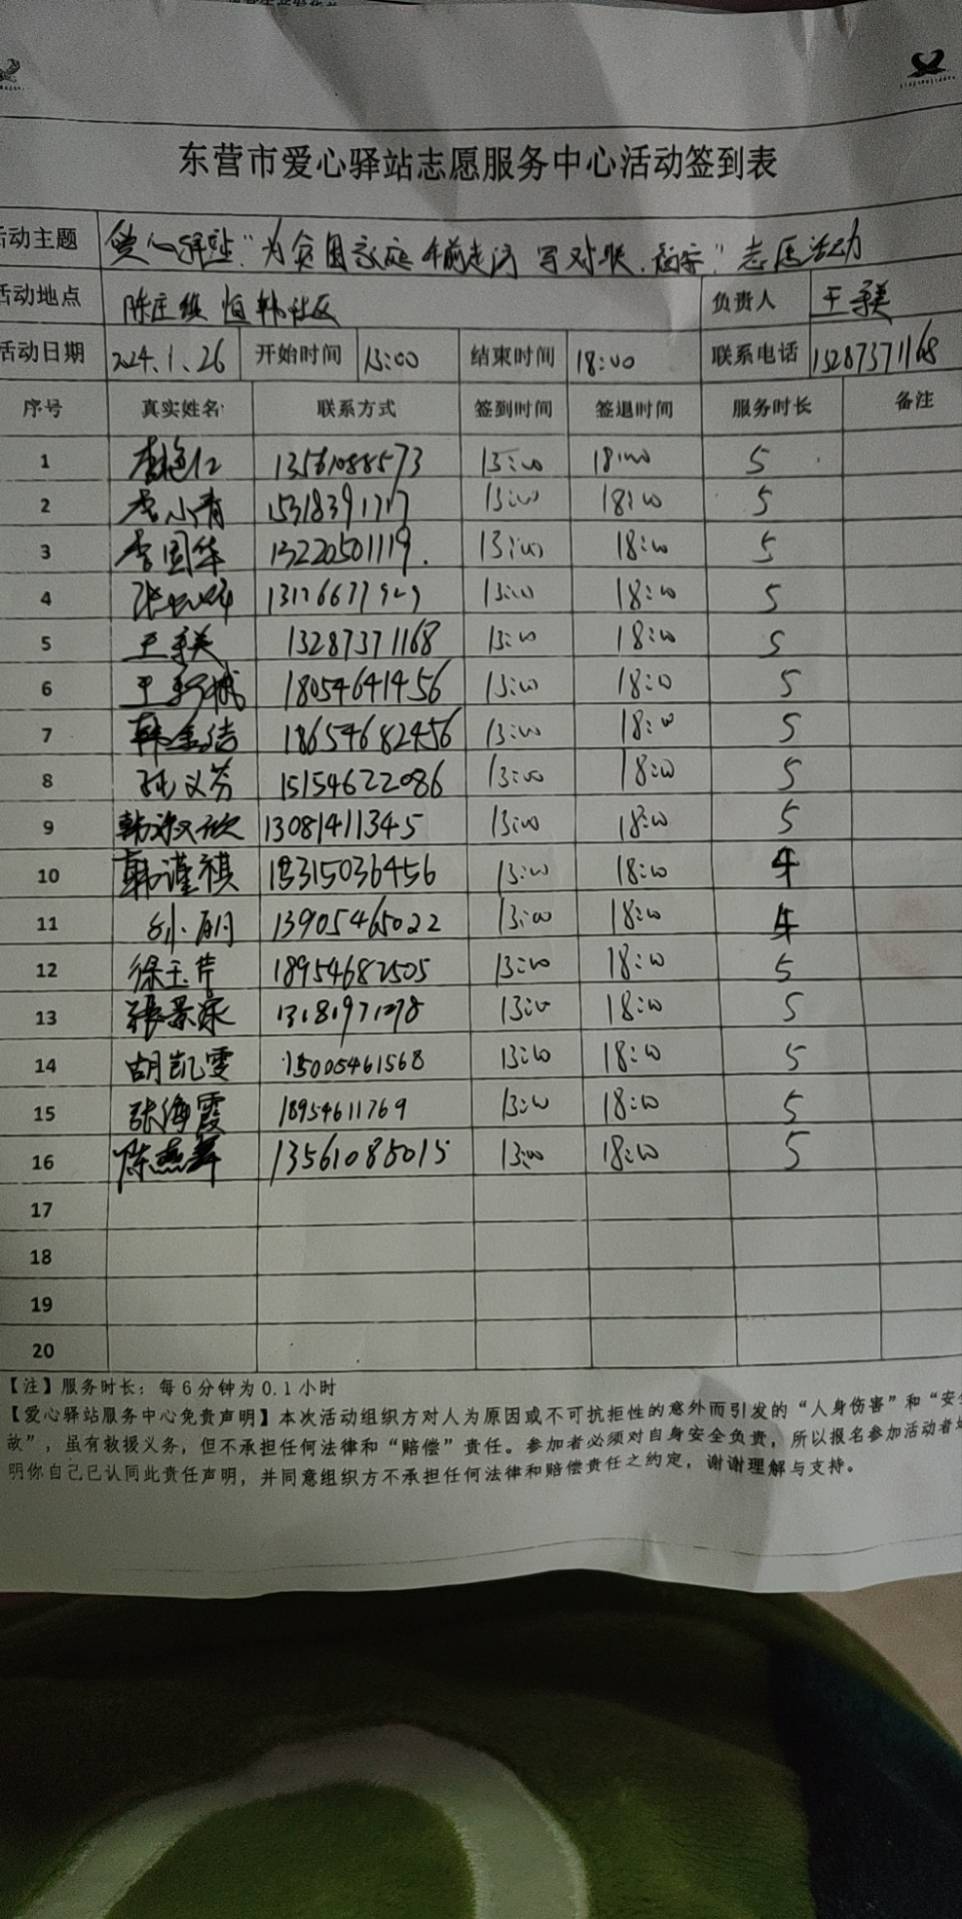 东营市爱心驿站志愿服务中心活动签到表
活动主题 爱心驿站"为贫困家庭年前走访 写对联、福字"志愿活动
活动地点 陈庄镇 恒韩社区 负责人 王
活动日期 2024.1.26 开始时间 13:00 结束时间 18:00 联系电话 13287371168
序号 真实姓名 联系方式 签到时间 签退时间 服务时长 备注
1 李艳仁 13561088573 13:00 18:00 5
2 李小青 15318391717 13:00 18:00 5
3 李国华 13220501119. 13:00 18:00 5
4 13:00 18:00 5
5 王 13287371168 13:00 18:00 5
6 王 18054641456 13:00 18:00 5
7 韩金洁 18654682456 13:00 18:00 5
8 义芬 15154622086 13:00 18:00 5
9 韩 欣 13081411345 13:00 18:00 5
10 韩谨祺 18315036456 13:00 18:00 4
11 13905465022 13:00 18:00 4
12 徐玉芹 18954682505 13:00 18:00 5
13 張景 13:00 18:00 5
14 胡凯雯 15005461568 13:00 18:00 5
15 张海霞 18954611769 13:00 18:00 5
16 陈燕 13561085015 13:00 18:00 5
17
18
19
20
【注】服务时长：每6分钟为0.1小时
【爱心驿站服务中心免责声明】本次活动组织方对人为原因或不可抗拒性的意外而引发的“人身伤害”和“安全
故”，虽有救援义务，但不承担任何法律和“赔偿”责任。参加者必须对自身安全负责，所以报名参加活动者
明你自己已认同此责任声明，并同意组织方不承担任何法律和赔偿责任之约定，谢谢理解与支持。